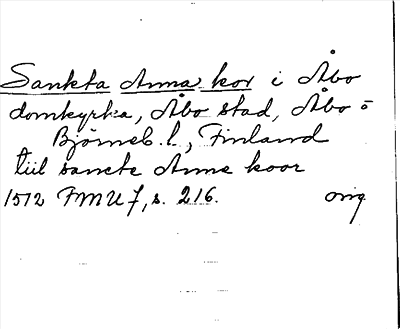 Sankta Anna kor i Åbo
domkyrka, Åbo stad, Åbo o
Björneb. l., Finland
till sancte Anne koor
1512 FMU 7, s. 216. orig